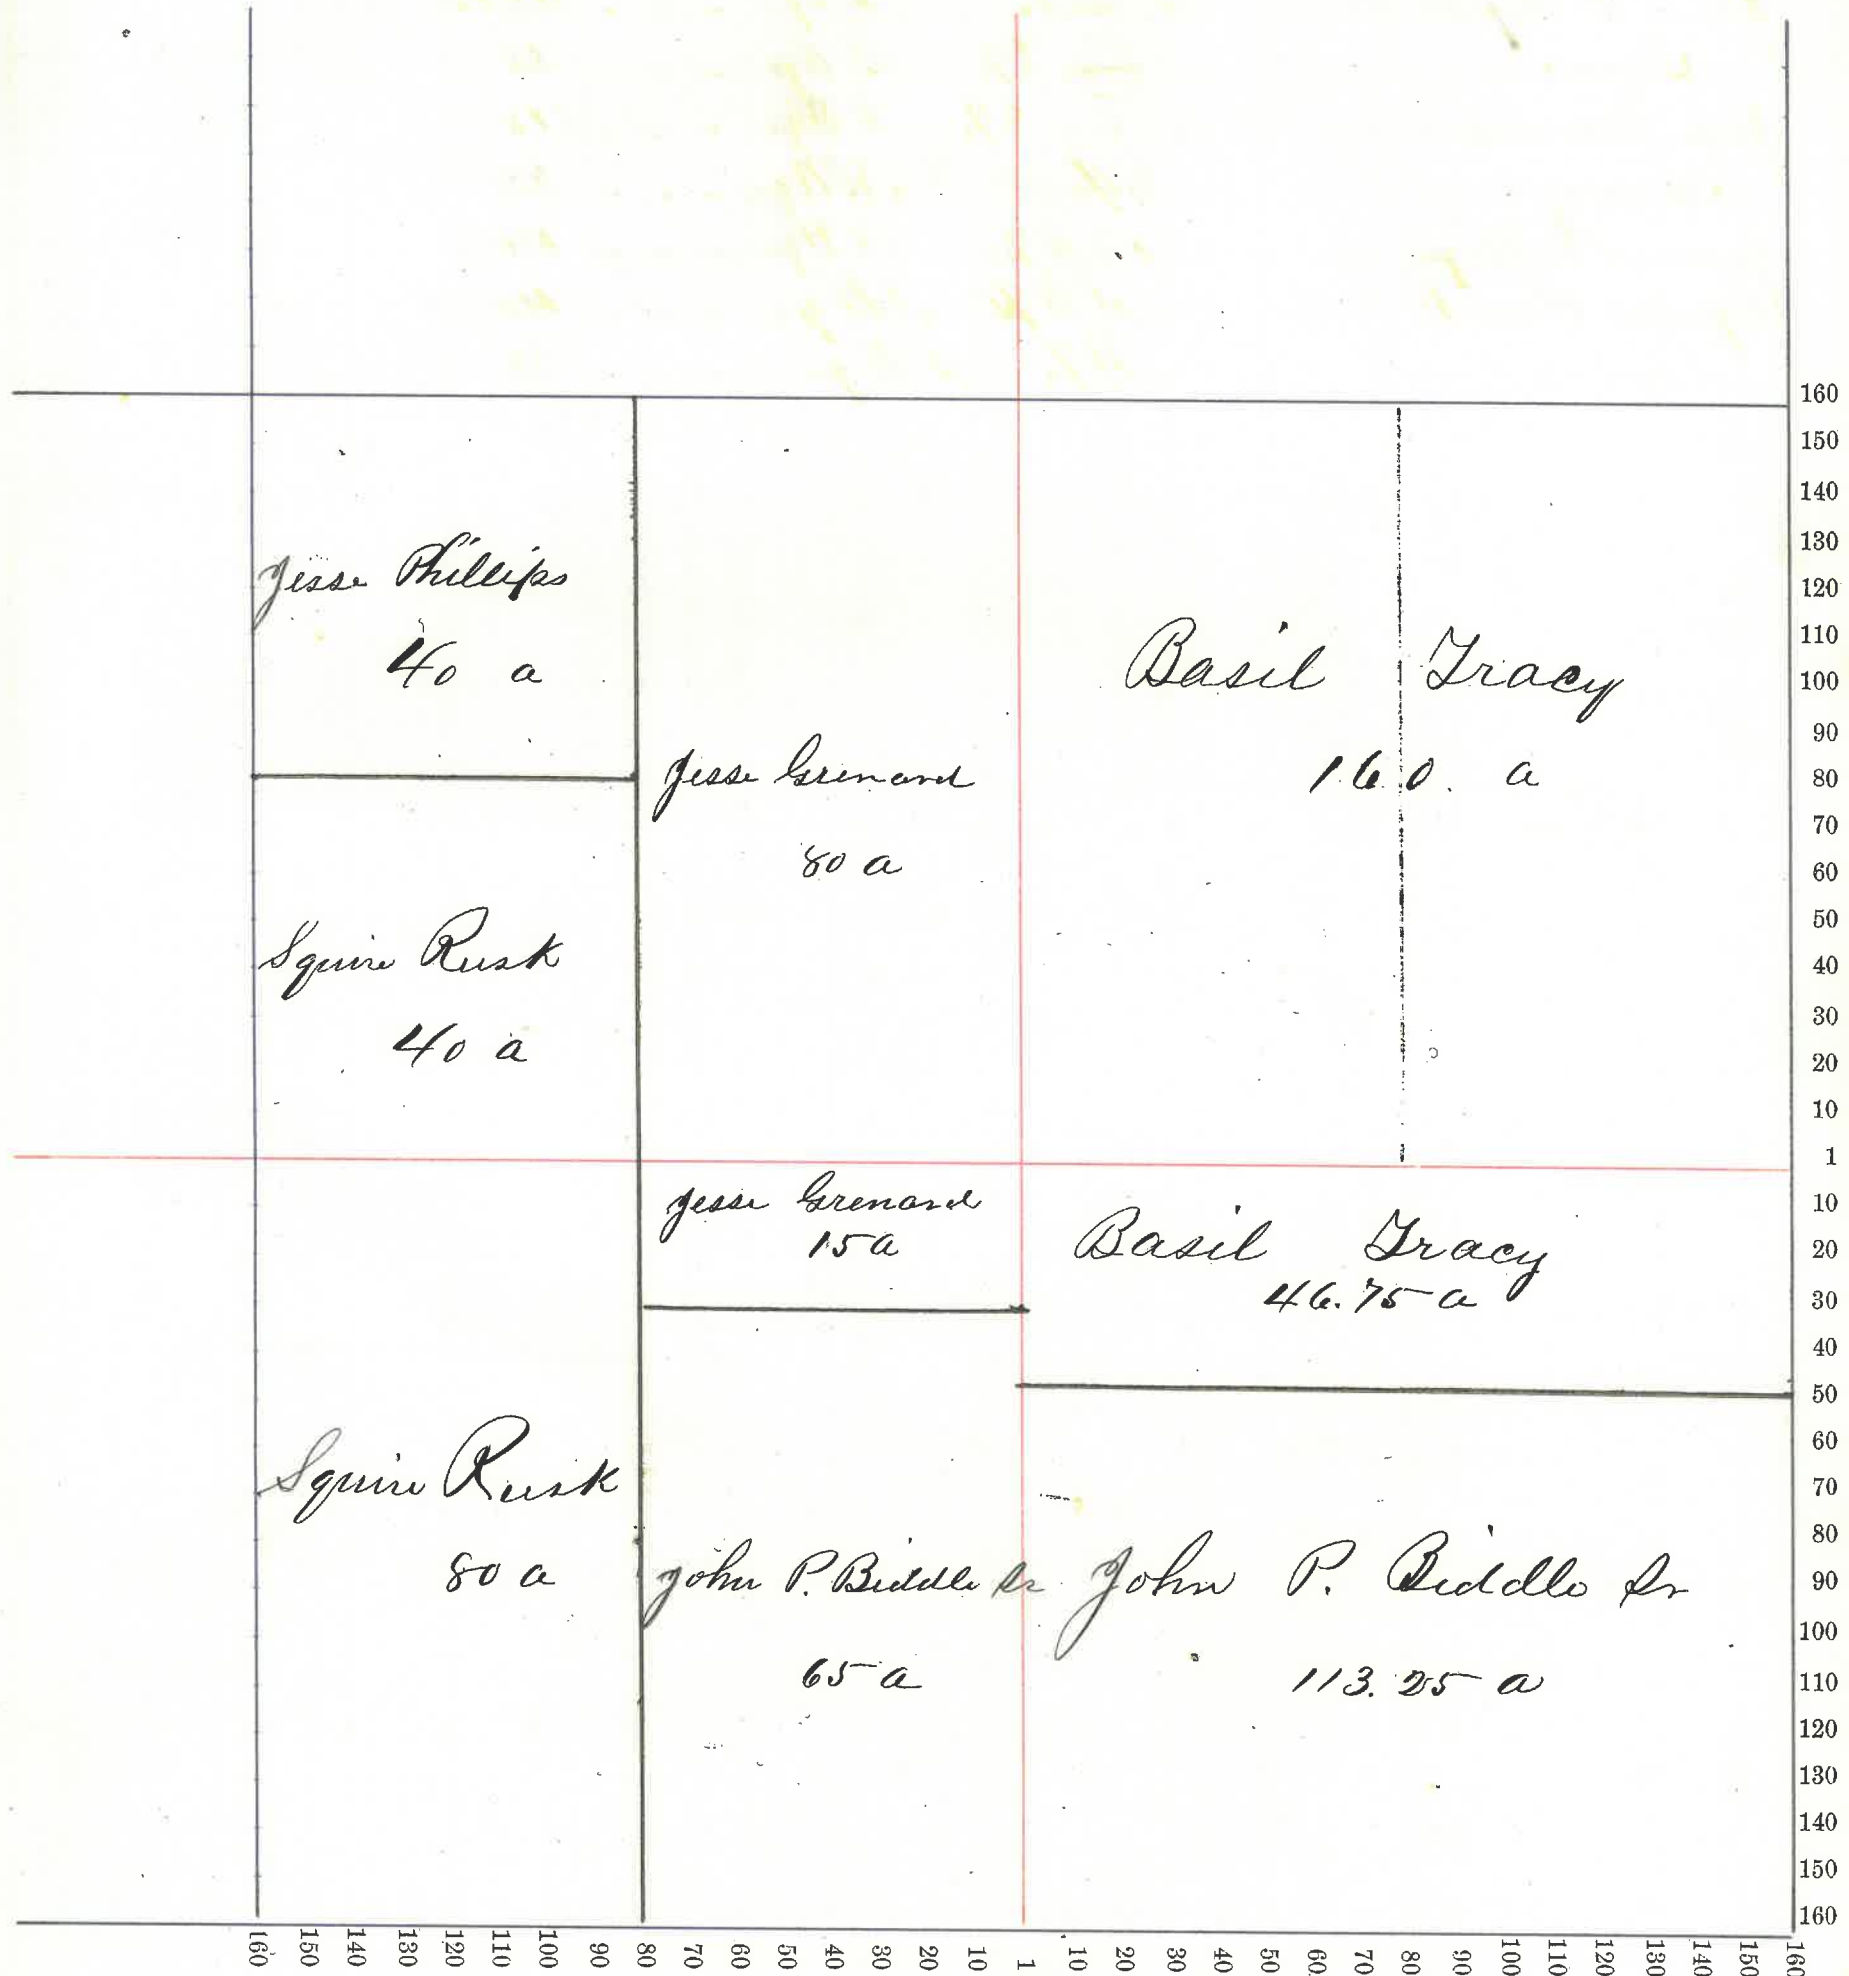 Jesse Phillips
40 a
Squire Rusk
40 a
Jesse Grenard
80 a
Basil Tracy
160. a
Jesse Grenard
15 a
Basil Tracy
46.75 a
Squire Rusk
80 a
John P. Biddle Sr
65 a
John P. Biddle Sr
113.25 a
160
150
140
130
120
110
100
90
80
70
60
50
40
30
20
10
1
10
20
30
40
50
60
70
80
90
100
110
120
130
140
150
160
160 150 140 130 120 110 100 90 80 70 60 50 40 30 20 10 1 10 20 30 40 50 60 70 80 90 100 110 120 130 140 150 160